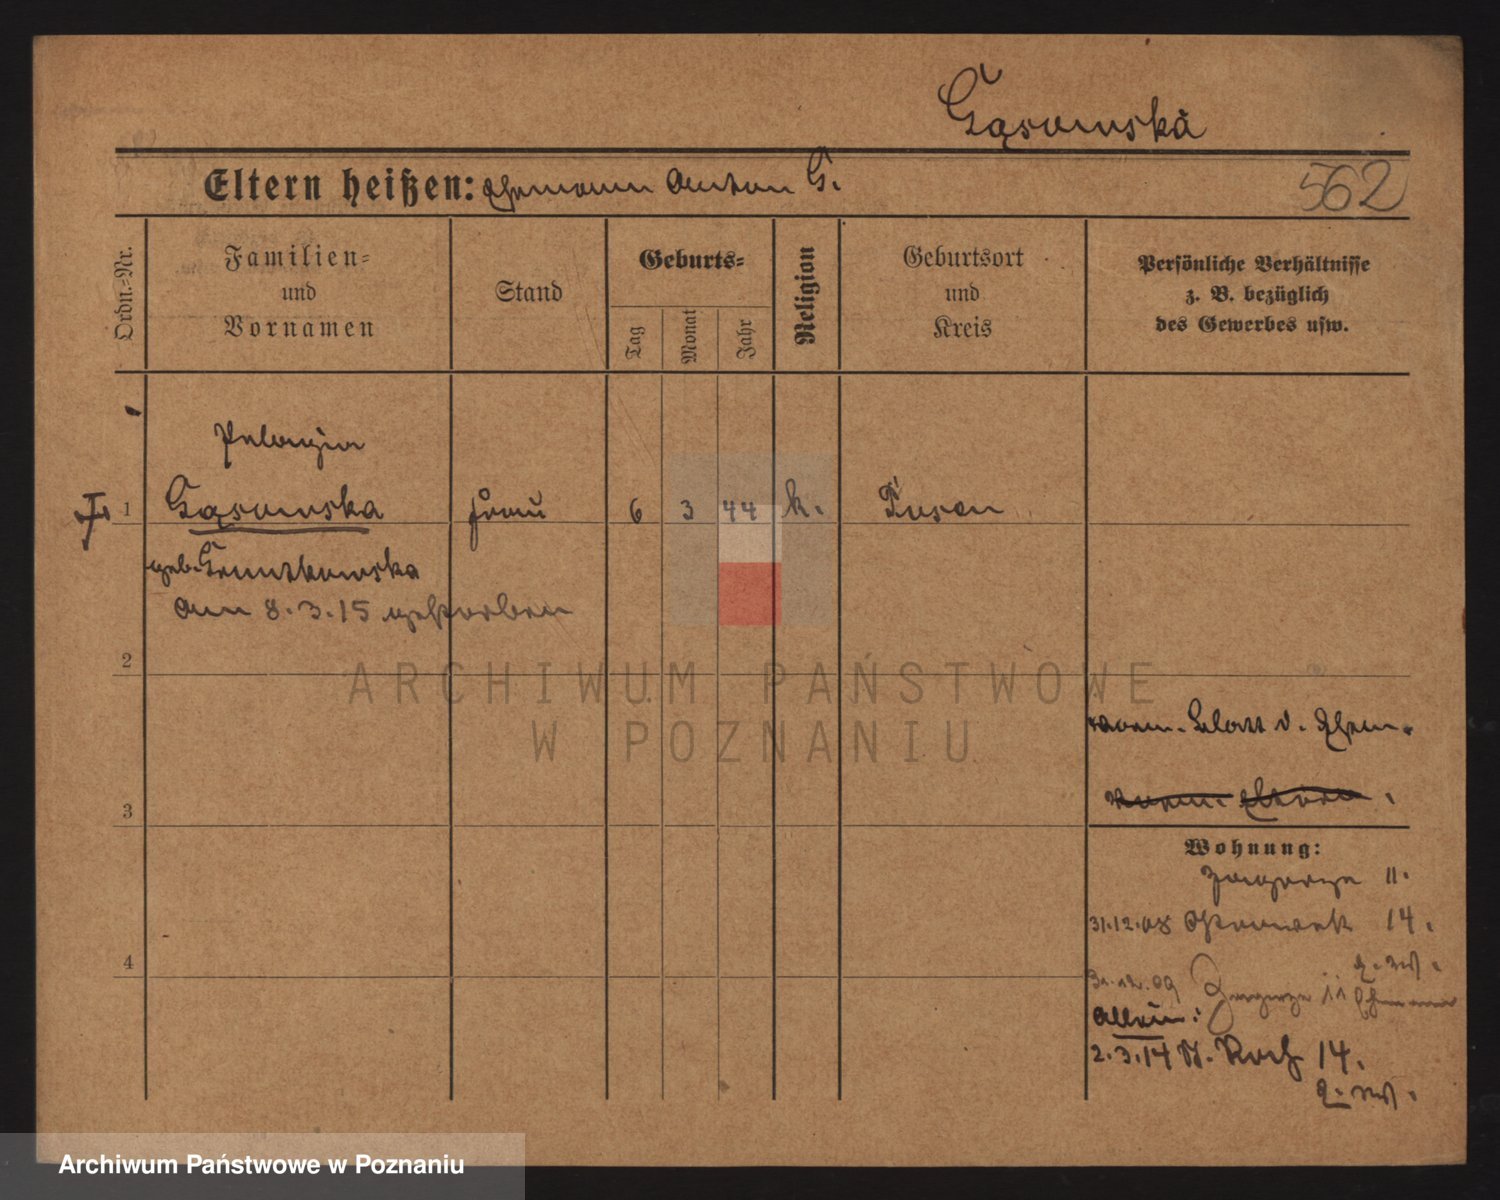 Gąsowska
Eltern heißen: Ehemann Anton G.
562
Ordn.-Nr.
Familien-
und
Vornamen
Stand
Geburts-
Tag
Monat
Jahr
Religion
Geburtsort
und
Kreis
Persönliche Verhältnisse
z. B. bezüglich
des Gewerbes usw.
Pelagia
1 Gąsowska Frau 6 3 44 k. Posen
geb.
am 8.3.15 gestorben
2
ARCHIWUM PAŃSTWOWE
W POZNANIU
Blatt d. Ehem.
3
Wohnung:
Zagorze 11.
31.12.08 Ostrowek 14.
4
31.12.09 Zagorze 11 Ehemann
Allein:
2.3.14 St. Roch 14.
Archiwum Państwowe w Poznaniu